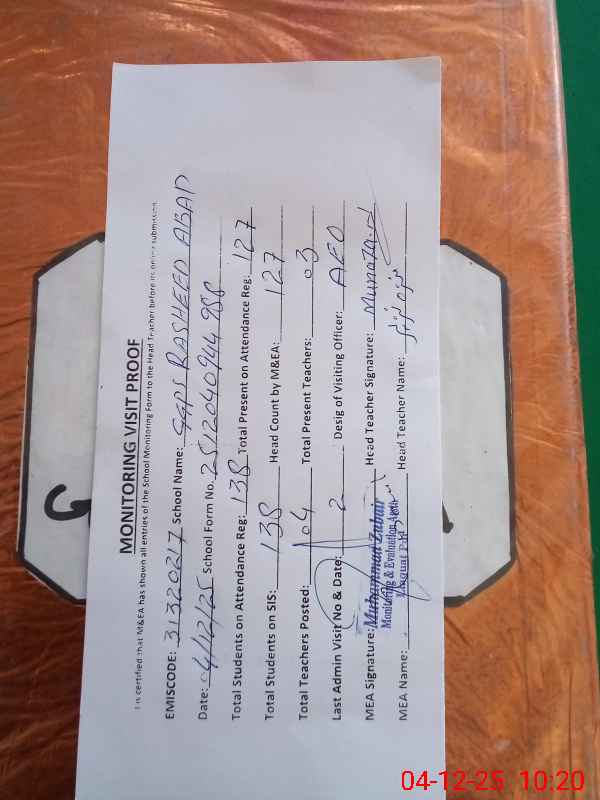 MONITORING VISIT PROOF
is certified that M&EA has shown all entries of the School Monitoring Form to the Head Teacher before its online submission
EMISCODE: 31320217 School Name: GGPS RASHEED ABAD
Date: 04/12/25 School Form No. 2512040944988
Total Students on Attendance Reg: 138 Total Present on Attendance Reg: 127
Total Students on SIS: 138 Head Count by M&EA: 127
Total Teachers Posted: 04 Total Present Teachers: 03
Last Admin Visit No & Date: 2 Desig of Visiting Officer: AEO
MEA Signature: Head Teacher Signature:
Muhammad Zubair
Monitoring & Evaluation
MEA Name: Head Teacher Name:
G
04-12-25 10:20